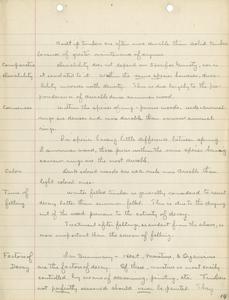 Built up timbers are often more durable than solid timbers
because of greater maintenance of dryness.
Comparative durability
Durability does not depend on Specific Gravity, nor
is it related to it. Within the same species however, dura-
bility increases with density. This is due largely to the pre-
ponderance of durable dense summer wood.
Coniferous
Within the species of ring-porous woods, wide annual
rings are denser and more durable than narrow annual
rings.
In species having little difference between spring
& summer wood, those pieces within the same species having
narrow rings are the most durable.
Color
Dark colored woods are as a rule more durable than
light colored ones.
Time of felling
Winter felled timber is generally considered to resist
decay better than summer felled. This is due to the drying
out of the wood previous to the activity of decay.
Treatment after felling, as evident from the above, is
more important than the season of felling.
Factors of Decay
In Summary - Heat, Moisture, & Organisms
are the factors of decay. Of these, moisture is most easily
controlled by means of seasoning, painting, etc. Timbers
not perfectly seasoned should never be painted. They